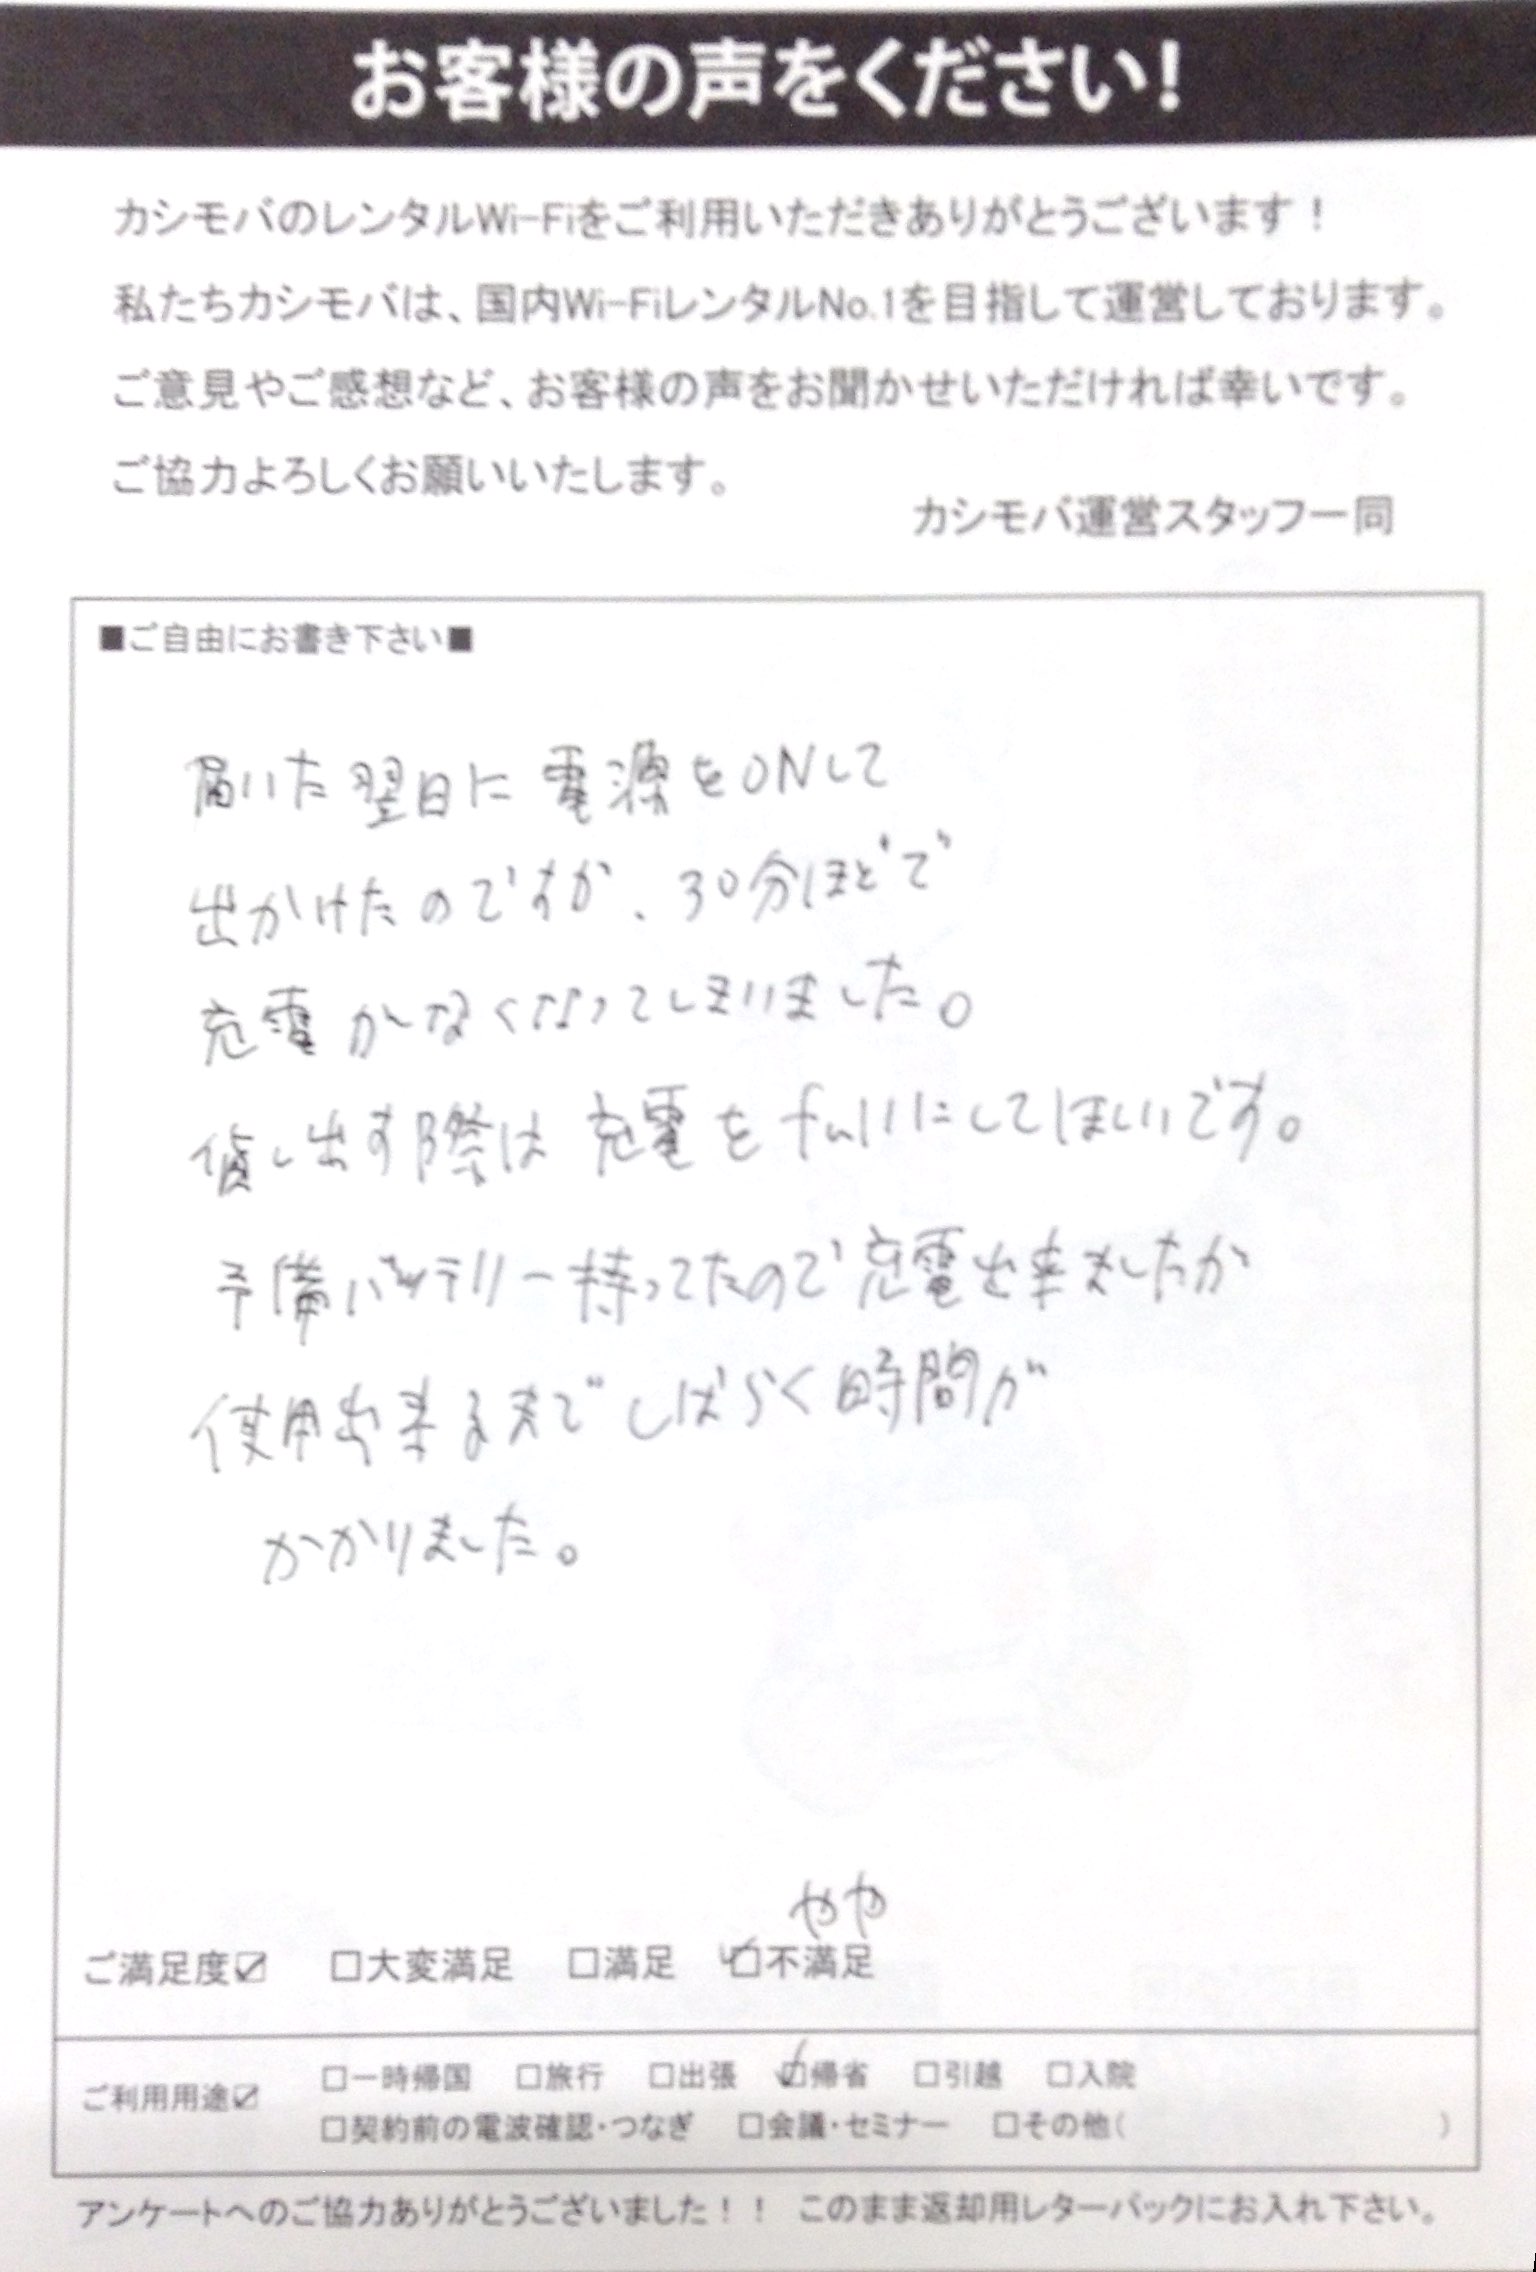 お客様の声をください!
カシモバのレンタルWi-Fiをご利用いただきありがとうございます！
私たちカシモバは、国内Wi-FiレンタルNo.1を目指して運営しております。
ご意見やご感想など、お客様の声をお聞かせいただければ幸いです。
ご協力よろしくお願いいたします。
カシモバ運営スタッフ一同
■ご自由にお書き下さい■
届いた翌日に電源をONして
出かけたのですが、30分ほどで
充電がなくなってしまいました。
貸し出す際は充電をfullにしてほしいです。
予備バッテリー持ってたので充電出来ましたが
使用出来るまでしばらく時間が
かかりました。
やや
ご満足度☑ □大変満足 □満足 ☑不満足
ご利用用途☑ □一時帰国 □旅行 □出張 ☑帰省 □引越 □入院
□契約前の電波確認・つなぎ □会議・セミナー □その他( )
アンケートへのご協力ありがとうございました！！ このまま返却用レターパックにお入れ下さい。